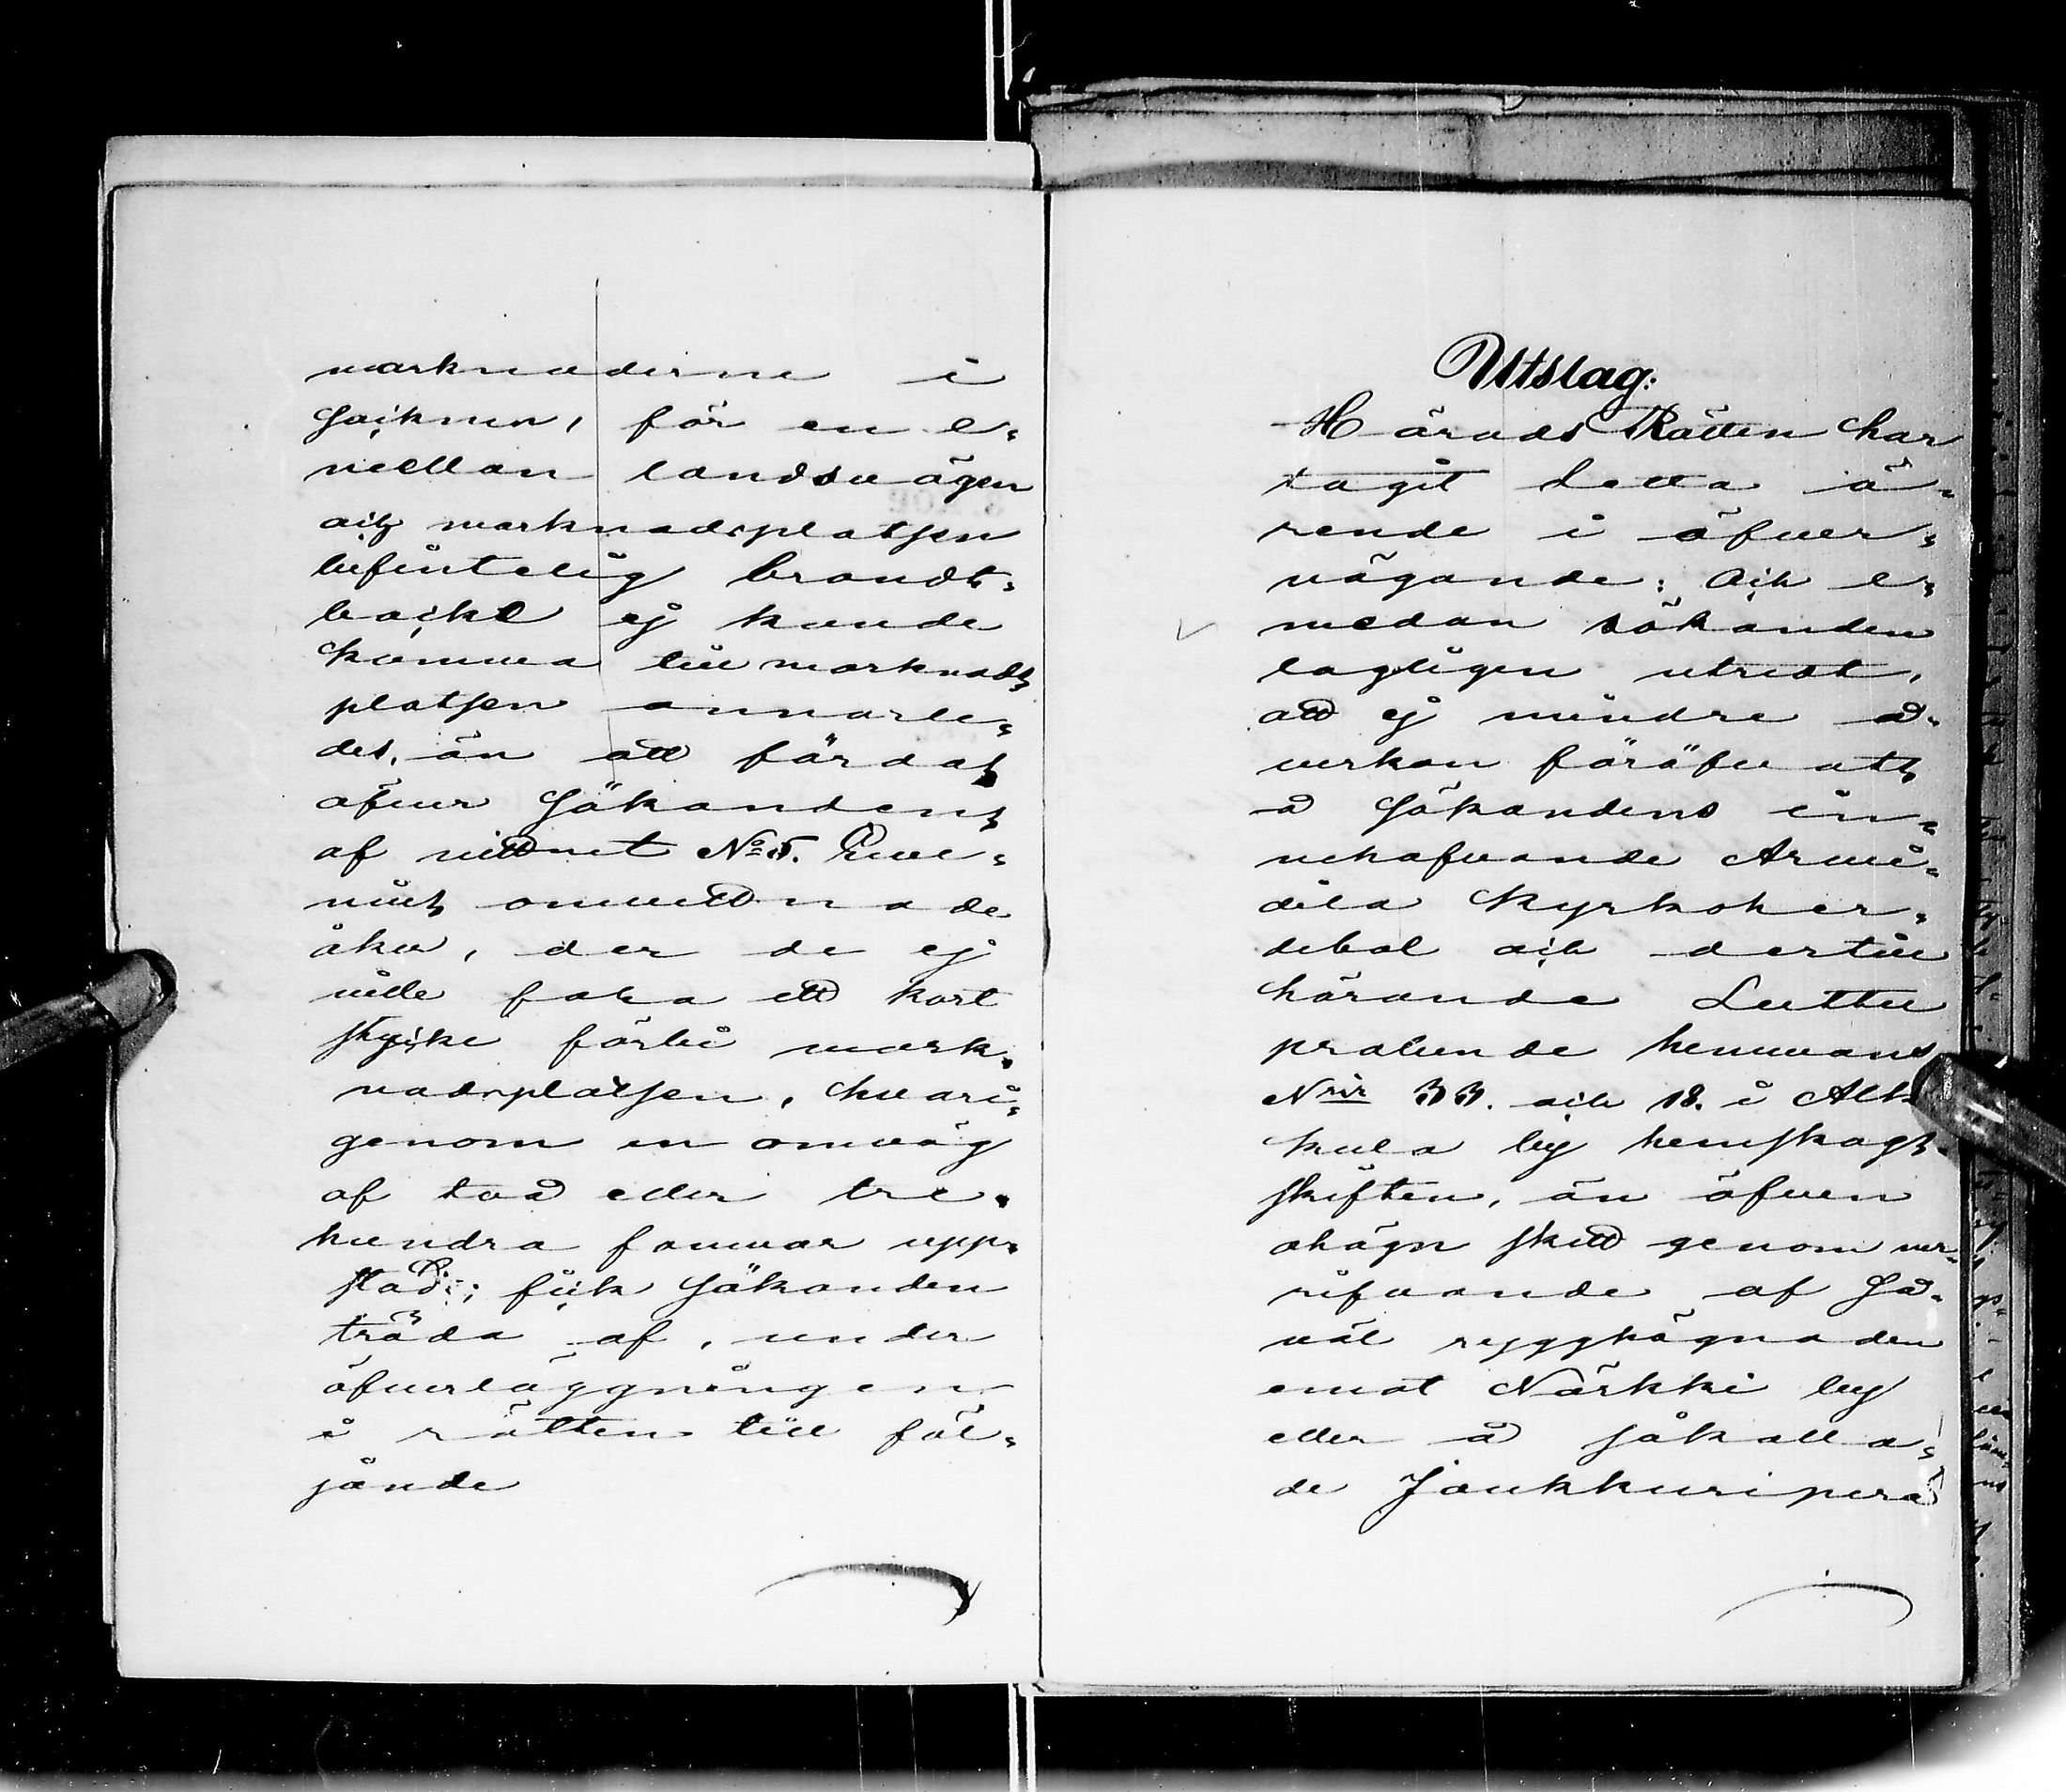 marknaderne i
Socknen, för en e-
mellan landsvägen
och marknadsplatsen
befintelig brandt-
backe ej kunde
komma till marknads
platsen annorle-
des, än att färdas
öfver Sökandens
af vittnet No 5.
omvittnade
åker, der de ej
ville fara ett kort
stycke förbi mark-
nadsplatsen, hvari-
genom en omväg
af två eller tre
hundra famnar upp-
stod; fick Sökanden
träda af, under
öfverläggningen
i rätten till föl-
jande
Utslag:
Härads Rätten har
tagit detta ä-
rende i öfver-
vägande: Och e-
medan sökanden
lagligen utredt,
att ej mindre å-
verkan föröfvats
å Sökandens in-
nehafvande Armi-
dila Kyrkoher-
debol och dertill
hörande Luttu
prabende hemmans
Nrir 33. och 18. i Alk
kula by hemskogs-
skiften, än äfven
ohägn skett genom ner-
rifvande af Så-
väl rygghägnaden
emot Närkki by
eller å såkalla-
de Jaukkuriperä